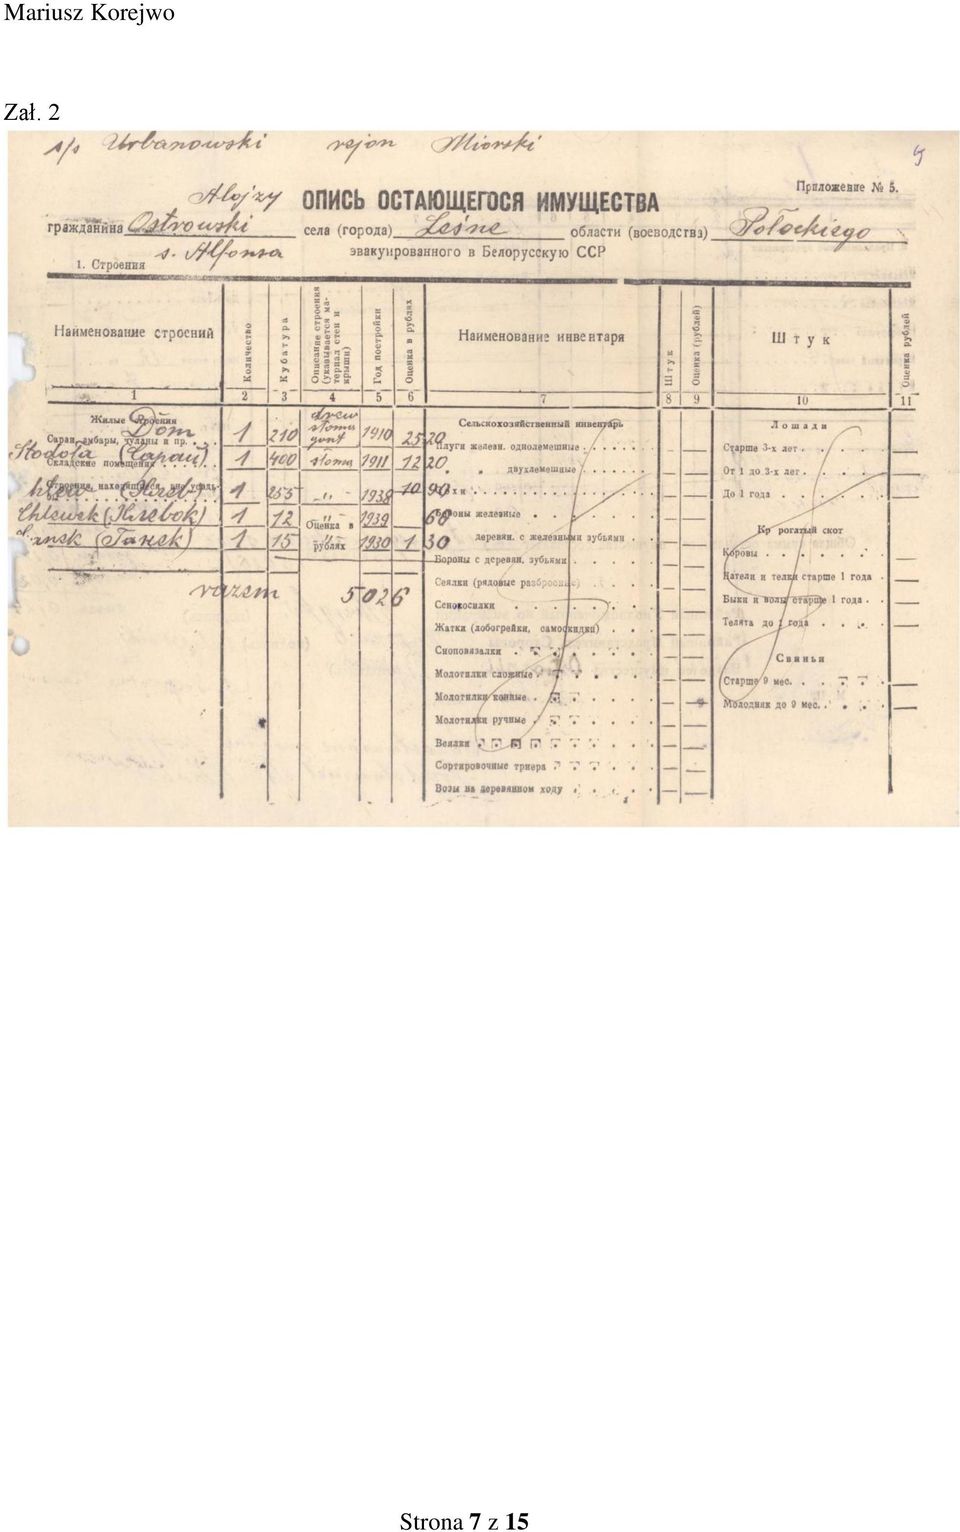 Mariusz Korejwo
Zał. 2
s/s Urbanowski rejon Miorski
Приложение № 5.
Alojzy ОПИСЬ ОСТАЮЩЕГОСЯ ИМУЩЕСТВА
гражданина Ostrowski села (города) Leśne области (воеводства) Połockiego
s. Alfonsa эвакуированного в Белорусскую ССР
1. Строения
Наименование строений
Количество
Кубатура
Описание строения (указывается материал стен и крыши)
Год постройки
Оценка в рублях
Наименование инвентаря
Штук
Оценка (рублей)
Штук
Оценка рублей
1 2 3 4 5 6 7 8 9 10 11
Жилые строения
Dom 1 210 drew słoma gont 1910 2520
Сараи, амбары, чуланы и пр.
Stodoła (Сарай) 1 400 słoma 1911 1220
Складские помещения
chlew (Хлев) 1 255 -„- 1938 1090
Chlewek (Хлевок) 1 12 -„- 1939 60
Оценка в рублях
(Танек) 1 15 1930 130
razem 5026
Сельскохозяйственный инвентарь
Плуги железн. одолемешные
„ двухлемешные
Бороны железные
деревян. с железными зубьями
Бороны с деревян. зубьями
Сеялки (рядовые разбросные)
Сенокосилки
Жатки (лобогрейки, самоскидки)
Сноповязалки
Молотилки сложные
Молотилки конные
Молотилки ручные
Веялки
Сортировочные триера
Возы на деревянном ходу
Лошади
Старше 3-х лет
От 1 до 3-х лет
До 1 года
Кр рогатый скот
Коровы
Нетели и телки старше 1 года
Быки и волы старше 1 года
Телята до 1 года
Свиньи
Старше 9 мес.
Молодняк до 9 мес.
Strona 7 z 15